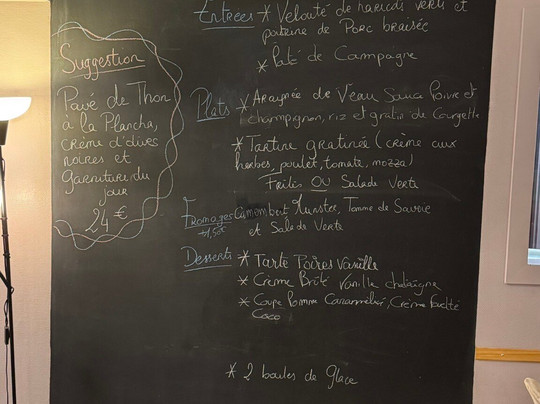 Suggestion
Pavé de Thon
à la Plancha,
crème d'olives
noires et
garniture du
jour
24 €
Entrées * Velouté de haricots verts et
poitrine de Porc braisée
* Paté de Campagne
Plats * Araignée de Veau Sauce Poivre et
champignon, riz et gratin de Courgette
* Tartine gratinée (crème aux
herbes, poulet, tomate, mozza)
Frites OU Salade Verte
Fromages Camembert, Munster, Tomme de Savoie
et Salade Verte
Desserts * Tarte Poires Vanille
* Crème Brûlé Vanille châtaigne
* Coupe Pomme Caramélisée, Crème fouetté
Coco
* 2 boules de Glace